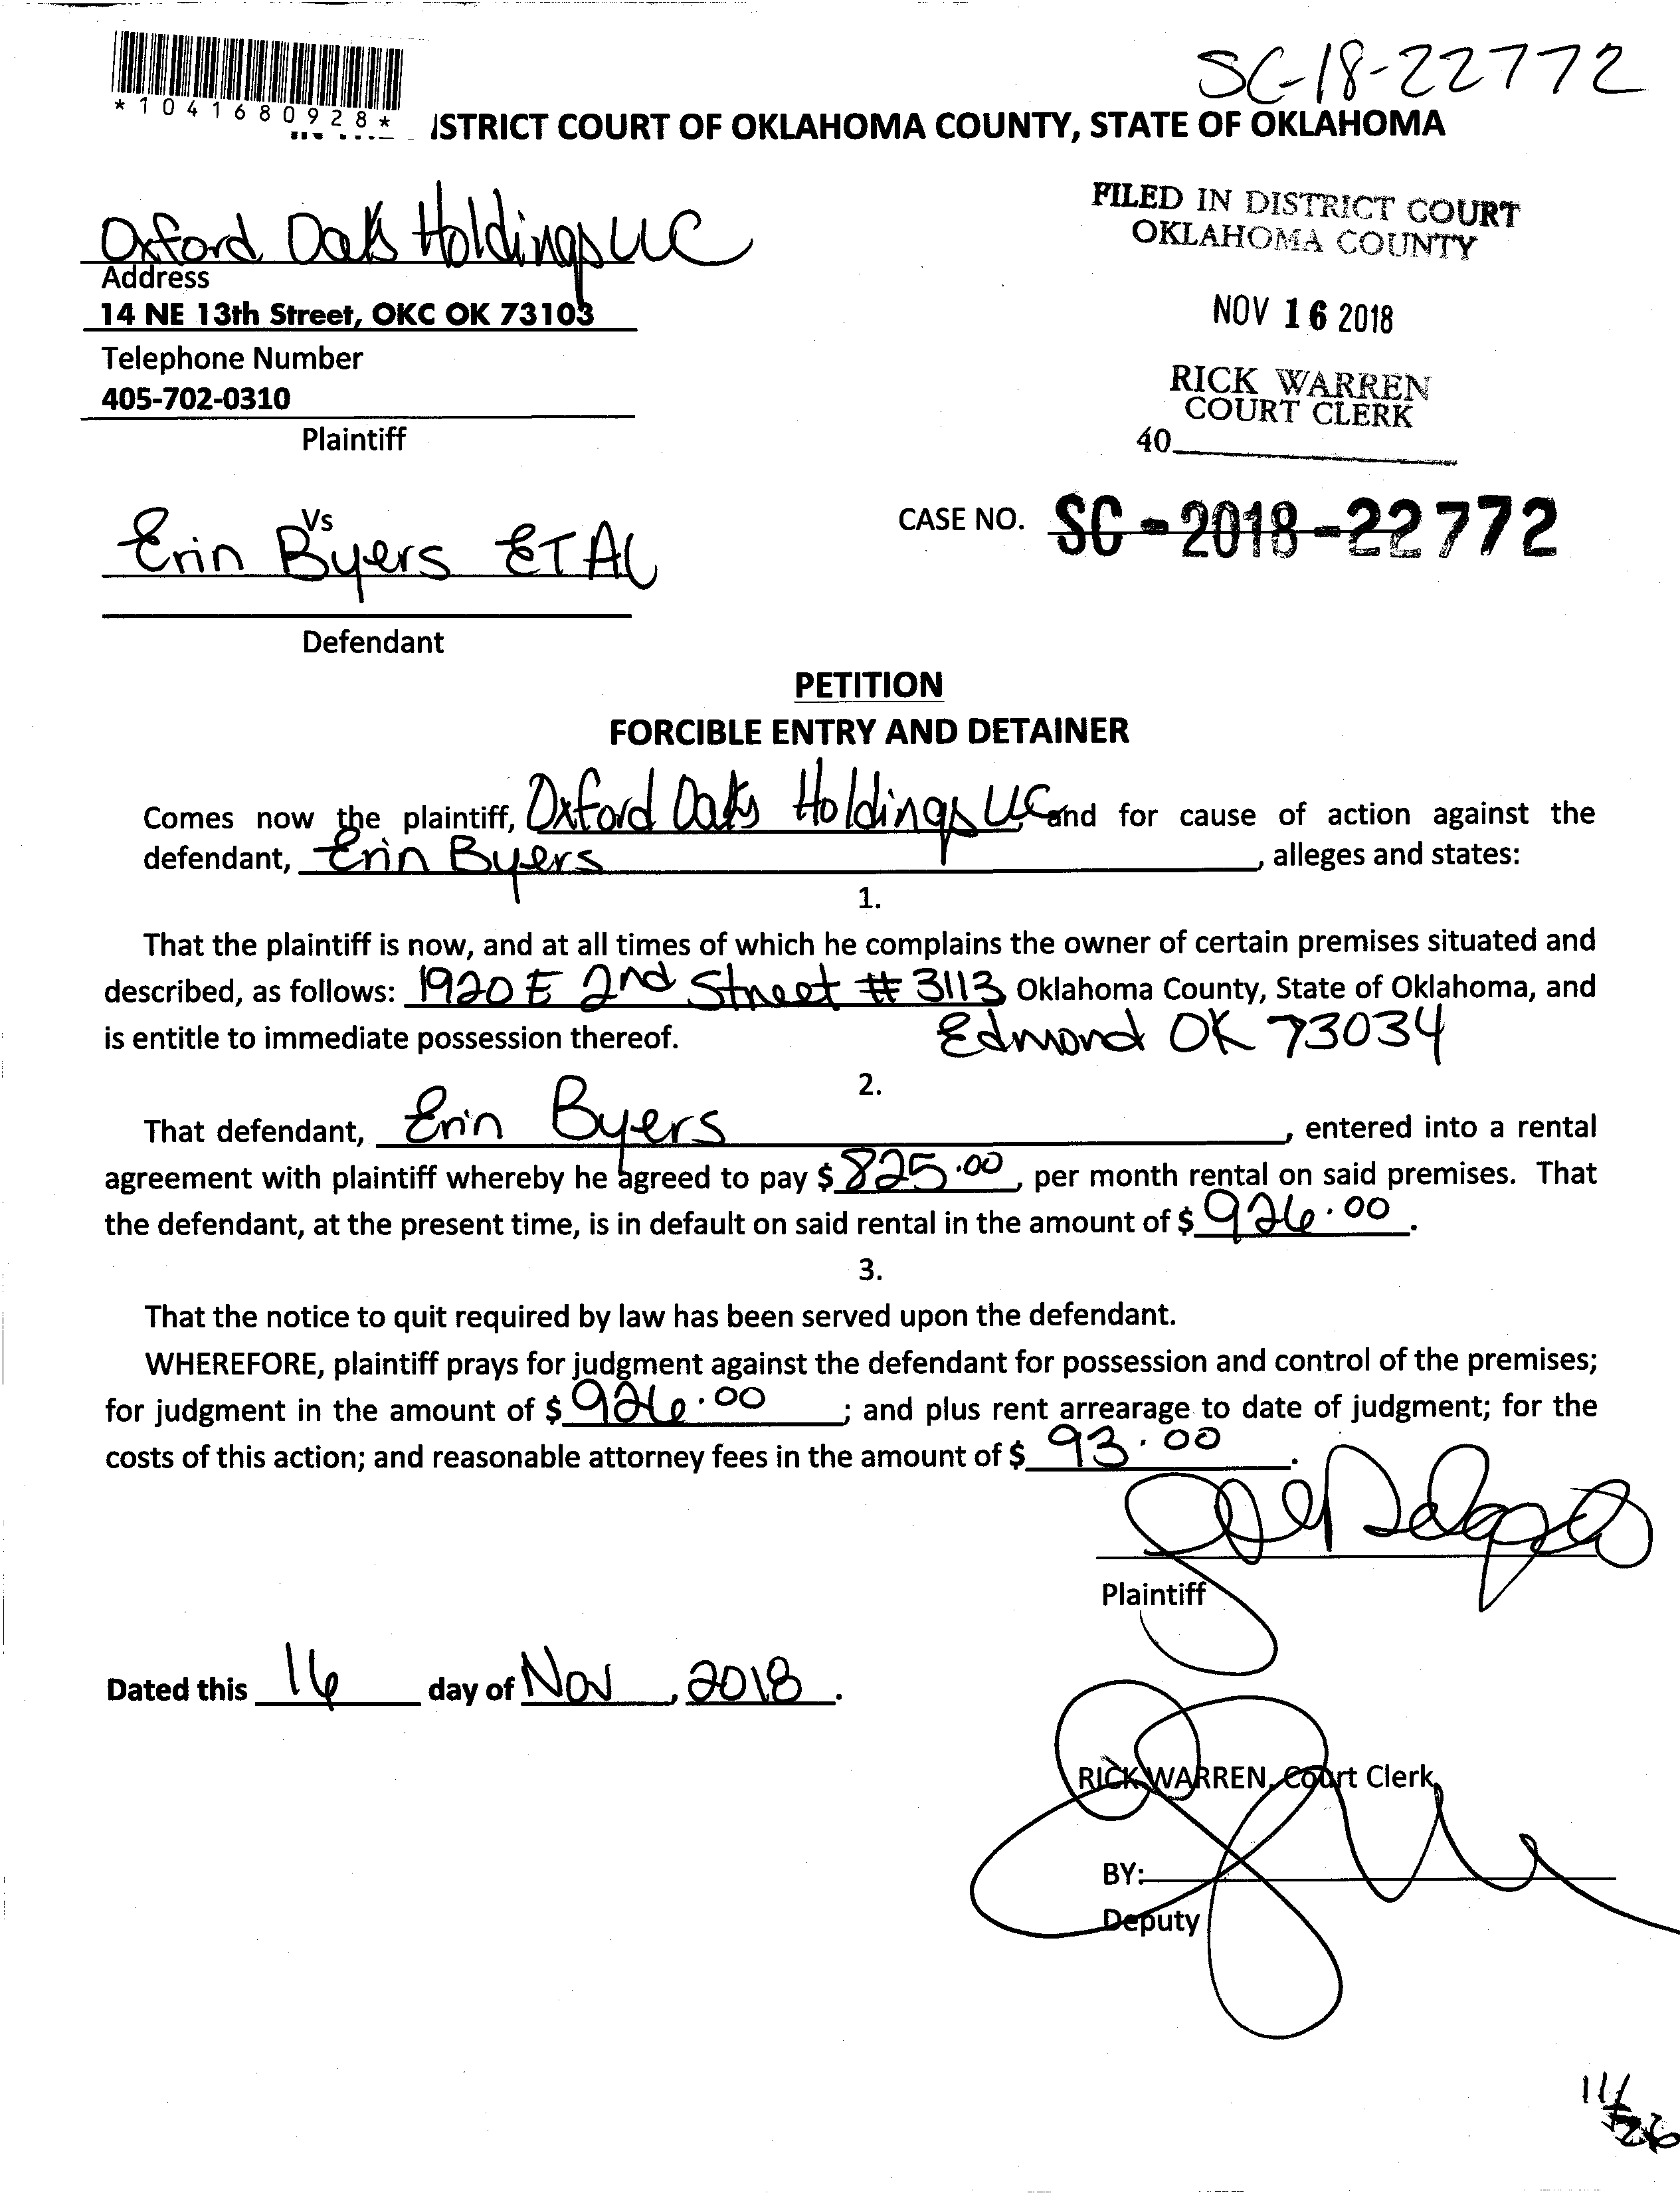 SC-18-22772
*1041680928*
ISTRICT COURT OF OKLAHOMA COUNTY, STATE OF OKLAHOMA
FILED IN DISTRICT COURT
OKLAHOMA COUNTY
Oxford Oaks Holdings LLC
Address
14 NE 13th Street, OKC OK 73103
NOV 16 2018
Telephone Number
405-702-0310
RICK WARREN
COURT CLERK
Plaintiff
40
Vs
Erin Byers ETAL
CASE NO. SC-2018-22772
Defendant
PETITION
FORCIBLE ENTRY AND DETAINER
Comes now the plaintiff, Oxford Oaks Holdings LLC and for cause of action against the
defendant, Erin Byers, alleges and states:
1.
That the plaintiff is now, and at all times of which he complains the owner of certain premises situated and
described, as follows: 1920 E 2nd Street # 3113, Oklahoma County, State of Oklahoma, and
is entitle to immediate possession thereof. Edmond OK 73034
2.
That defendant, Erin Byers, entered into a rental
agreement with plaintiff whereby he agreed to pay $ 825.00, per month rental on said premises. That
the defendant, at the present time, is in default on said rental in the amount of $ 926.00.
3.
That the notice to quit required by law has been served upon the defendant.
WHEREFORE, plaintiff prays for judgment against the defendant for possession and control of the premises;
for judgment in the amount of $ 926.00; and plus rent arrearage to date of judgment; for the
costs of this action; and reasonable attorney fees in the amount of $ 93.00.
Plaintiff
Dated this 16 day of Nov, 2018.
RICK WARREN, Court Clerk
BY:
Deputy
11/26